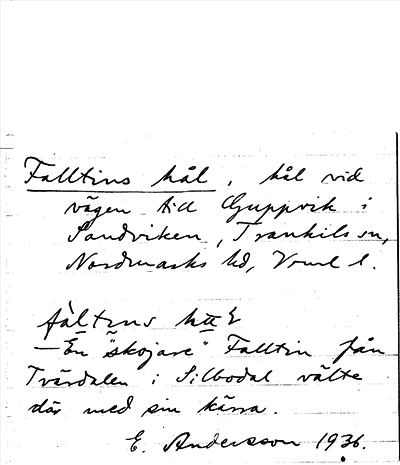 Falltins hål, hål vid
vägen till Guppvik i
Sandviken, Trankils sn,
Nordmarks hd, Vrml l.
fàltıns
— En "skojare" Falltin från
Tvärdalen i Silbodal välte
där med sin kärra.
E. Andersson 1936.